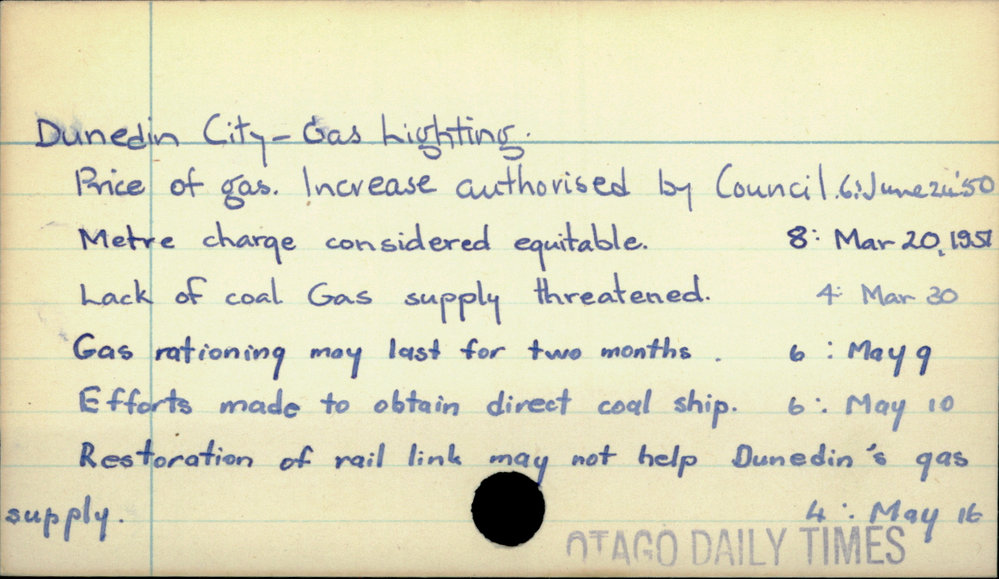 Dunedin City - Gas Lighting.
Price of gas. Increase authorised by Council. 6: June 24 '50
Metre charge considered equitable. 8: Mar 20, 1951
Lack of coal Gas supply threatened. 4: Mar 30
Gas rationing may last for two months. 6: May 9
Efforts made to obtain direct coal ship. 6: May 10
Restoration of rail link may not help Dunedin's gas
supply. 4: May 16
OTAGO DAILY TIMES